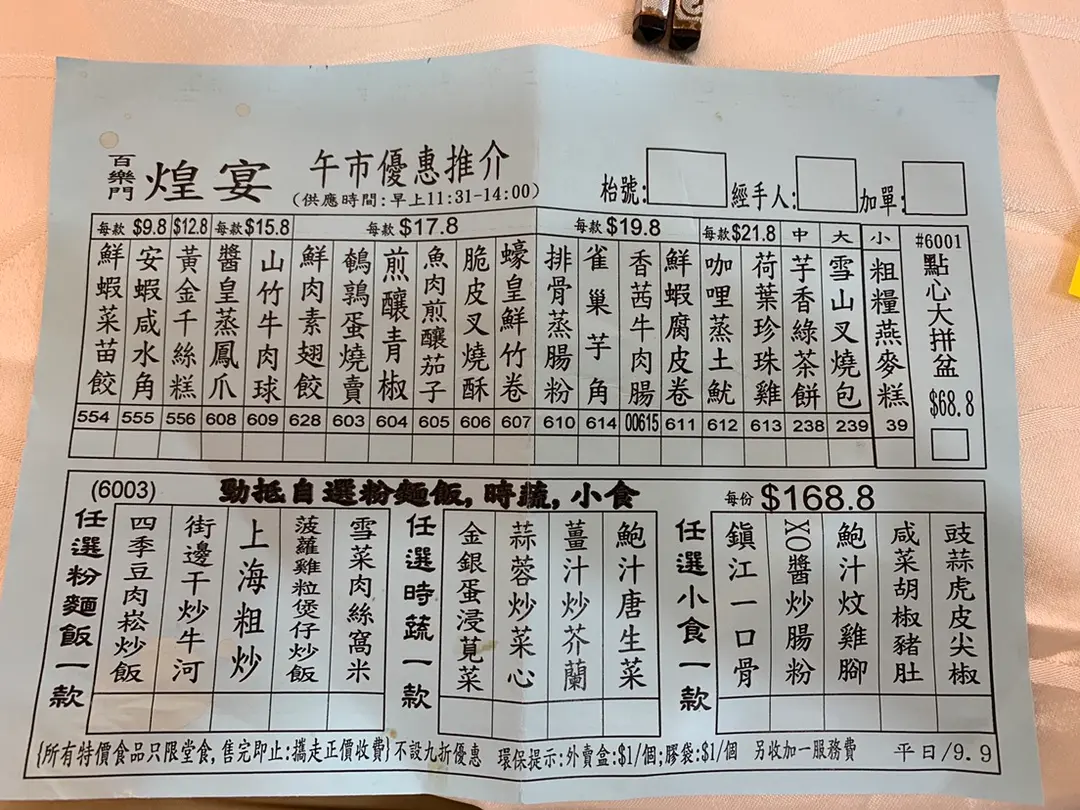 百樂門 煌宴 午市優惠推介
(供應時間:早上11:31-14:00)
枱號: 經手人: 加單:
每款 $9.8 $12.8 每款$15.8 每款 $17.8 每款 $19.8 每款$21.8 中 大 小 #6001
鮮蝦菜苗餃
安蝦咸水角
黃金千絲糕
醬皇蒸鳳爪
山竹牛肉球
鮮肉素翅餃
鵪鶉蛋燒賣
煎釀青椒
魚肉煎釀茄子
脆皮叉燒酥
蠔皇鮮竹卷
排骨蒸腸粉
雀巢芋角
香茜牛肉腸
鮮蝦腐皮卷
咖哩蒸土魷
荷葉珍珠雞
芋香綠茶餅
雪山叉燒包
粗糧燕麥糕
點心大拼盆
$68.8
554 555 556 608 609 628 603 604 605 606 607 610 614 00615 611 612 613 238 239 39
(6003) 勁抵自選粉麵飯,時蔬,小食 每份 $168.8
任選粉麵飯一款
四季豆肉崧炒飯
街邊干炒牛河
上海粗炒
菠蘿雞粒煲仔炒飯
雪菜肉絲窩米
任選時蔬一款
金銀蛋浸莧菜
蒜蓉炒菜心
薑汁炒芥蘭
鮑汁唐生菜
任選小食一款
鎮江一口骨
XO醬炒腸粉
鮑汁炆雞腳
咸菜胡椒豬肚
豉蒜虎皮尖椒
{所有特價食品只限堂食,售完即止:攜走正價收費}不設九折優惠 環保提示:外賣盒:$1/個;膠袋:$1/個 另收加一服務費 平日/9.9